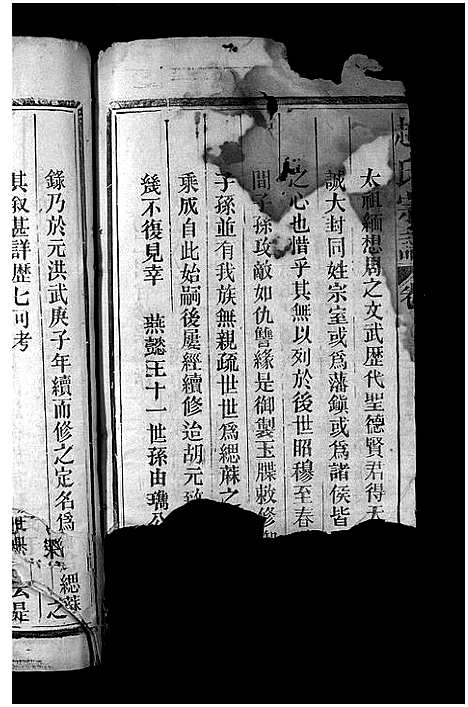 趙氏宗譜 卷
太祖緬想周之文武歷代聖德賢君得天
誠大封同姓宗室或爲藩鎭或爲諸侯皆
之心也惜乎其無以列於後世昭穆至春
間子孫攻敵如仇讐緣是御製玉牒敕修
子孫並有我族無親疏世世爲緦蔴之
乘成自此始嗣後屢經續修迨胡元
幾不復見幸 燕懿王十一世孫由鐫公
錄乃於元洪武庚子年續而修之定名爲
緦蔴之
其叙甚詳歷七可考